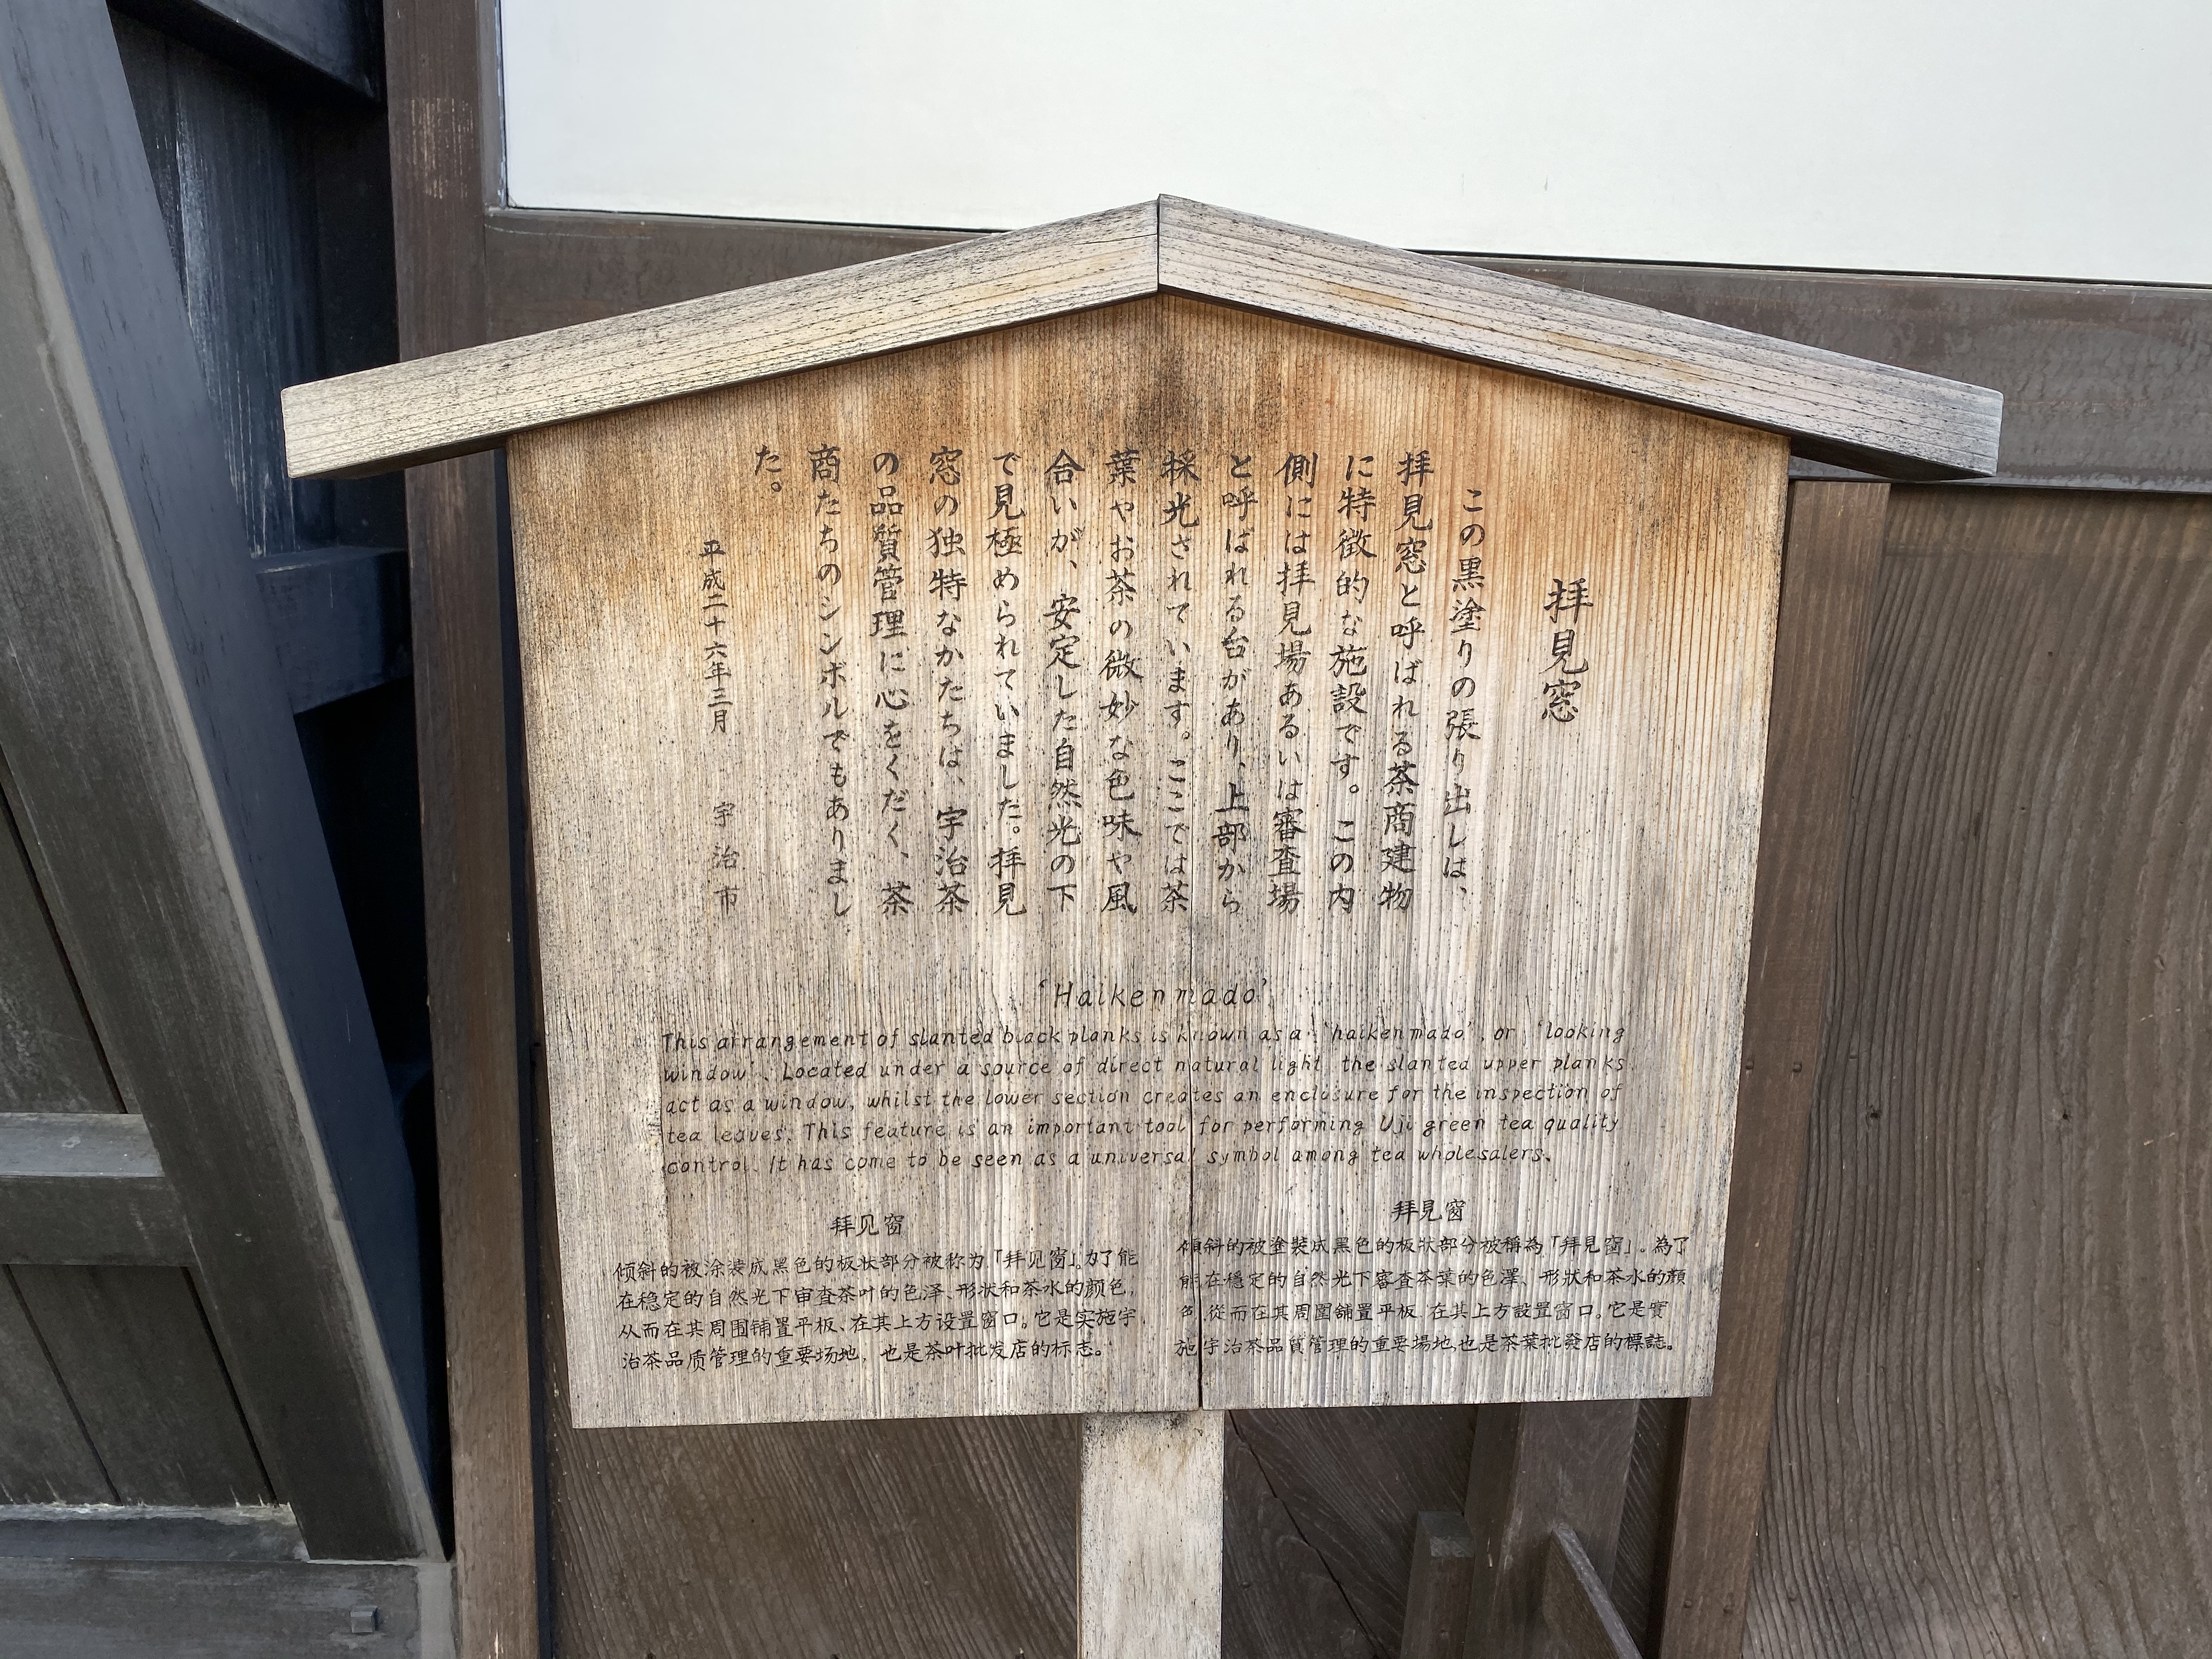 拝見窓
この黒塗りの張り出しは、
拝見窓と呼ばれる茶商建物
に特徴的な施設です。この内
側には拝見場あるいは審査場
と呼ばれる台があり、上部から
採光されています。ここでは茶
葉やお茶の微妙な色味や風
合いが、安定した自然光の下
で見極められていました。拝見
窓の独特なかたちは、宇治茶
の品質管理に心をくだく、茶
商たちのシンボルでもありまし
た。
平成二十六年三月 宇治市
'Haikenmado'
This arrangement of slanted black planks is known as a 'haikenmado', or 'looking
window'. Located under a source of direct natural light, the slanted upper planks
act as a window, whilst the lower section creates an enclosure for the inspection of
tea leaves. This feature is an important tool for performing Uji green tea quality
control. It has come to be seen as a universal symbol among tea wholesalers.
拜见窗
倾斜的被涂装成黑色的板状部分被称为「拜见窗」。为了能
在稳定的自然光下审查茶叶的色泽、形状和茶水的颜色，
从而在其周围铺置平板、在其上方设置窗口。它是实施宇
治茶品质管理的重要场地，也是茶叶批发店的标志。
拜見窗
傾斜的被塗裝成黑色的板狀部分被稱為「拜見窗」。為了
能在穩定的自然光下審查茶葉的色澤、形狀和茶水的顏
色,從而在其周圍舖置平板、在其上方設置窗口。它是實
施宇治茶品質管理的重要場地,也是茶葉批發店的標誌。